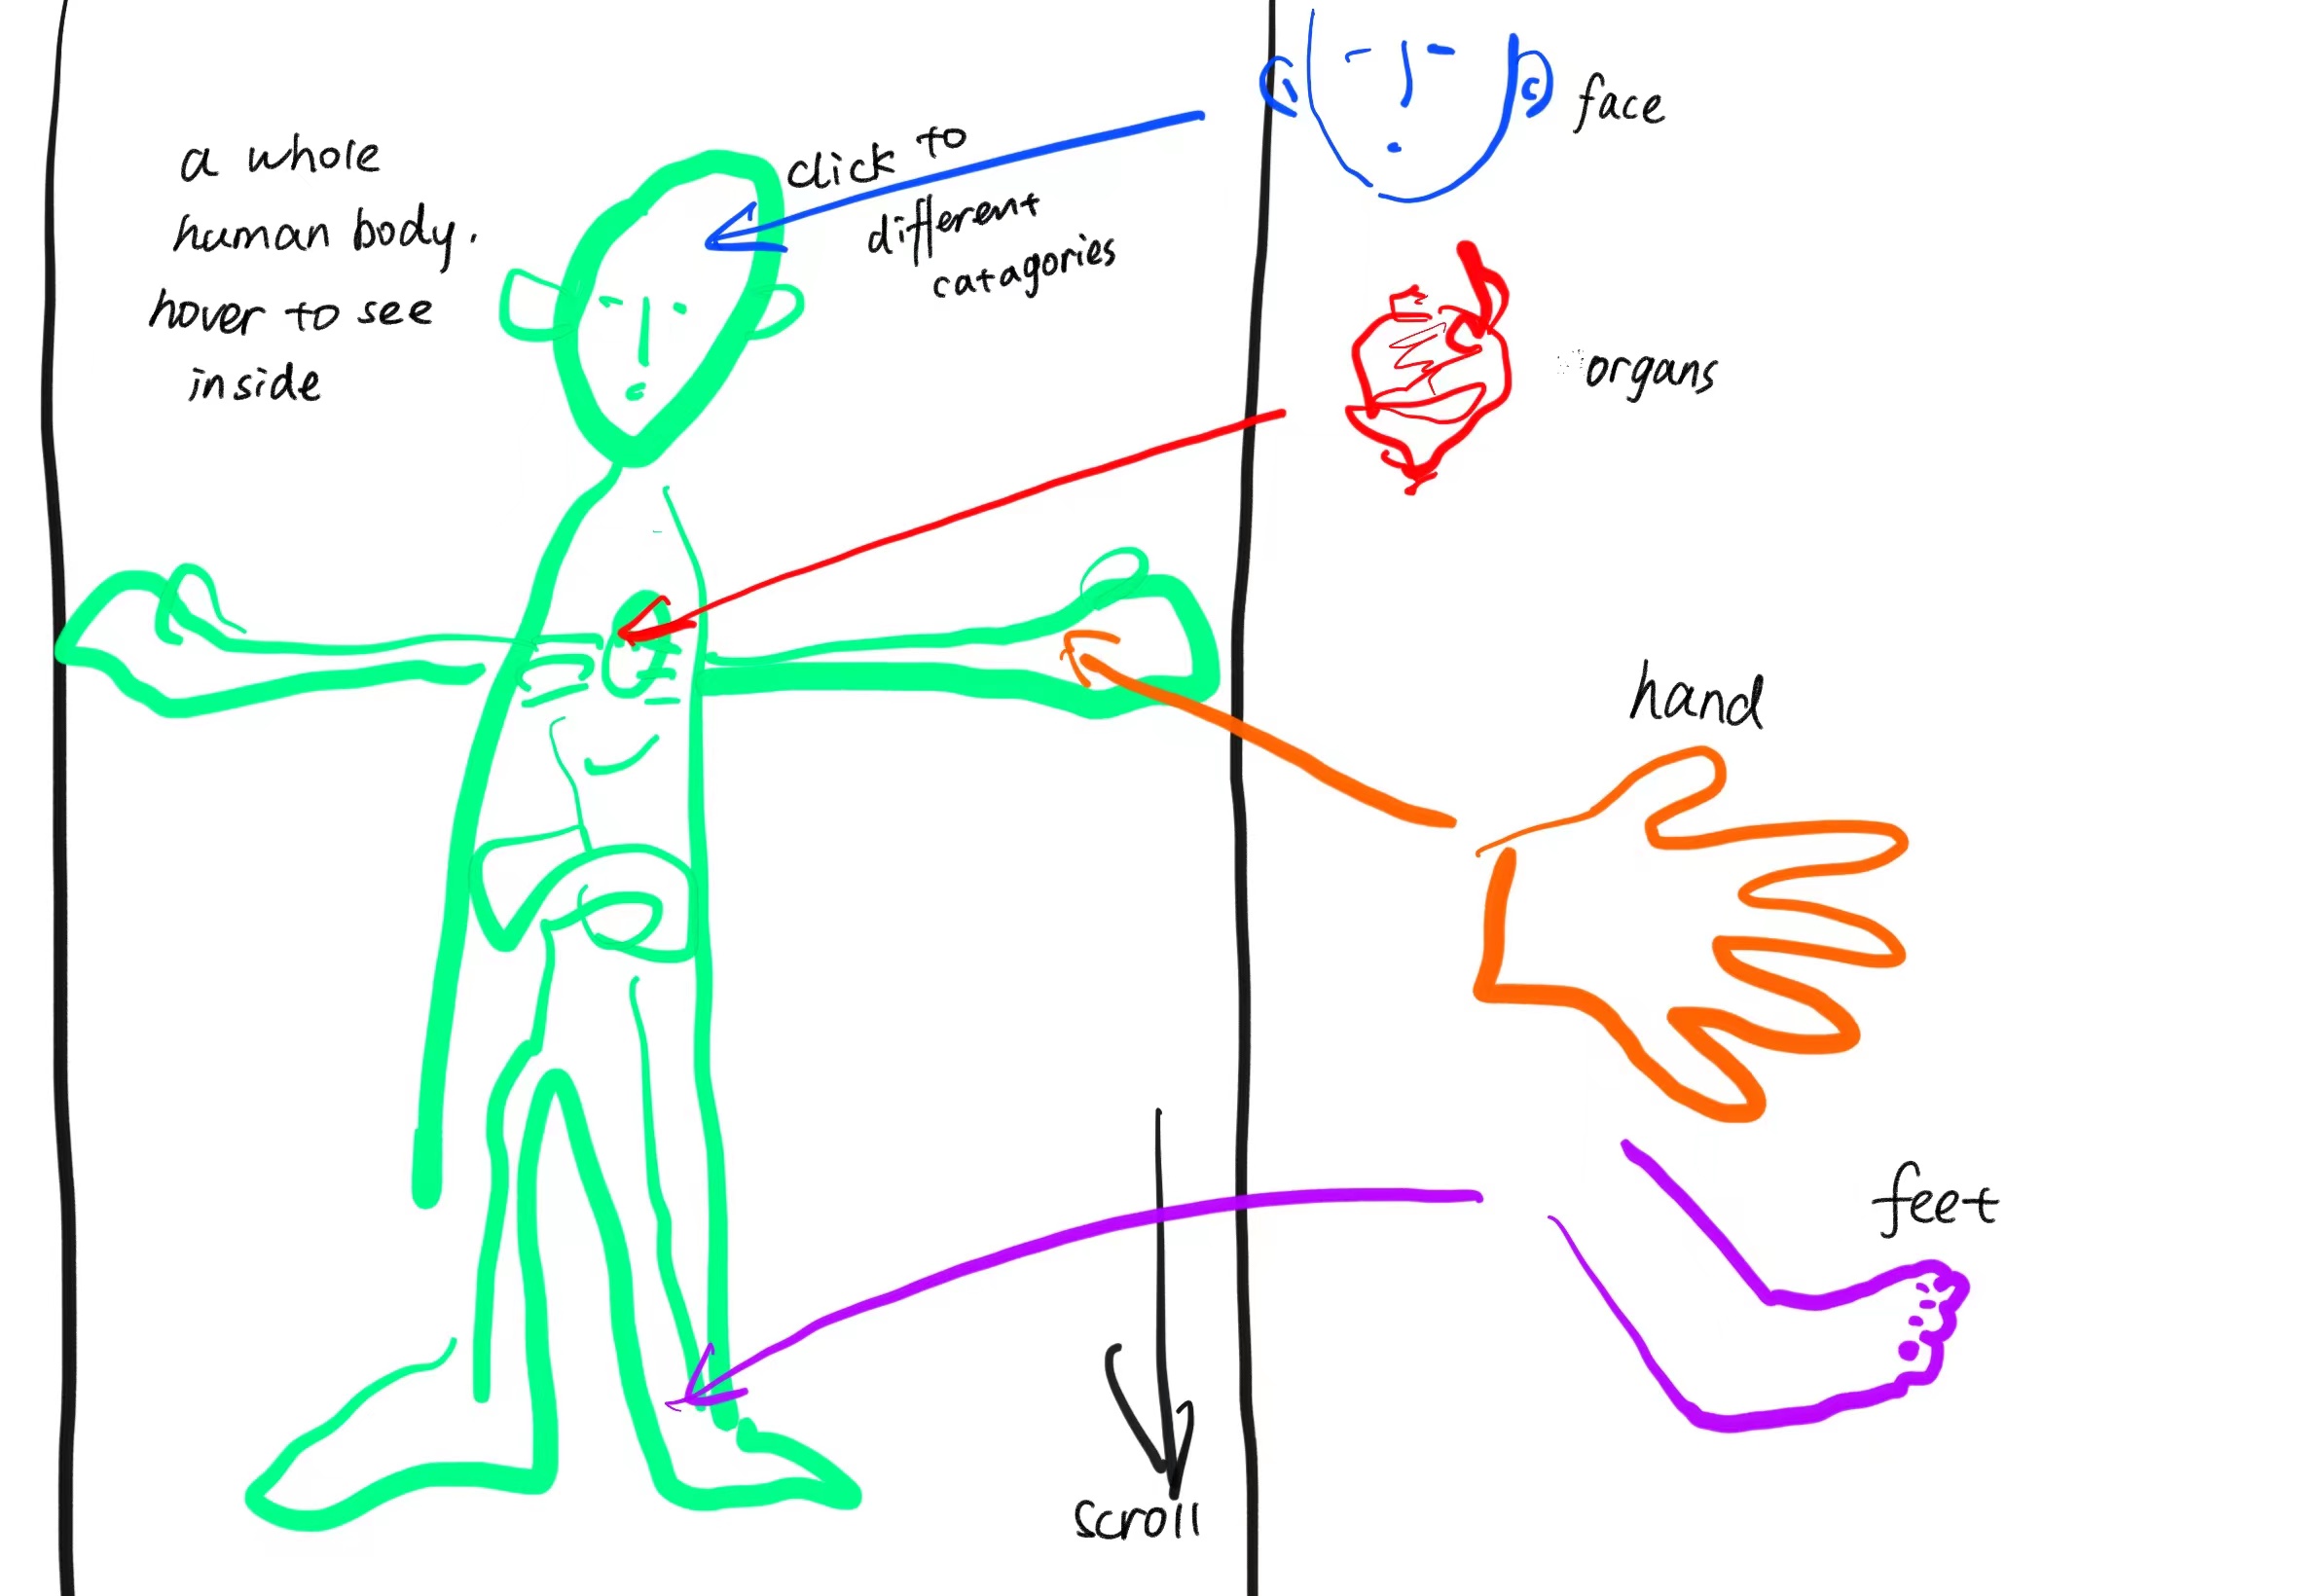 a whole
human body.
hover to see
inside
click to
different
catagories
face
organs
hand
feet
scroll